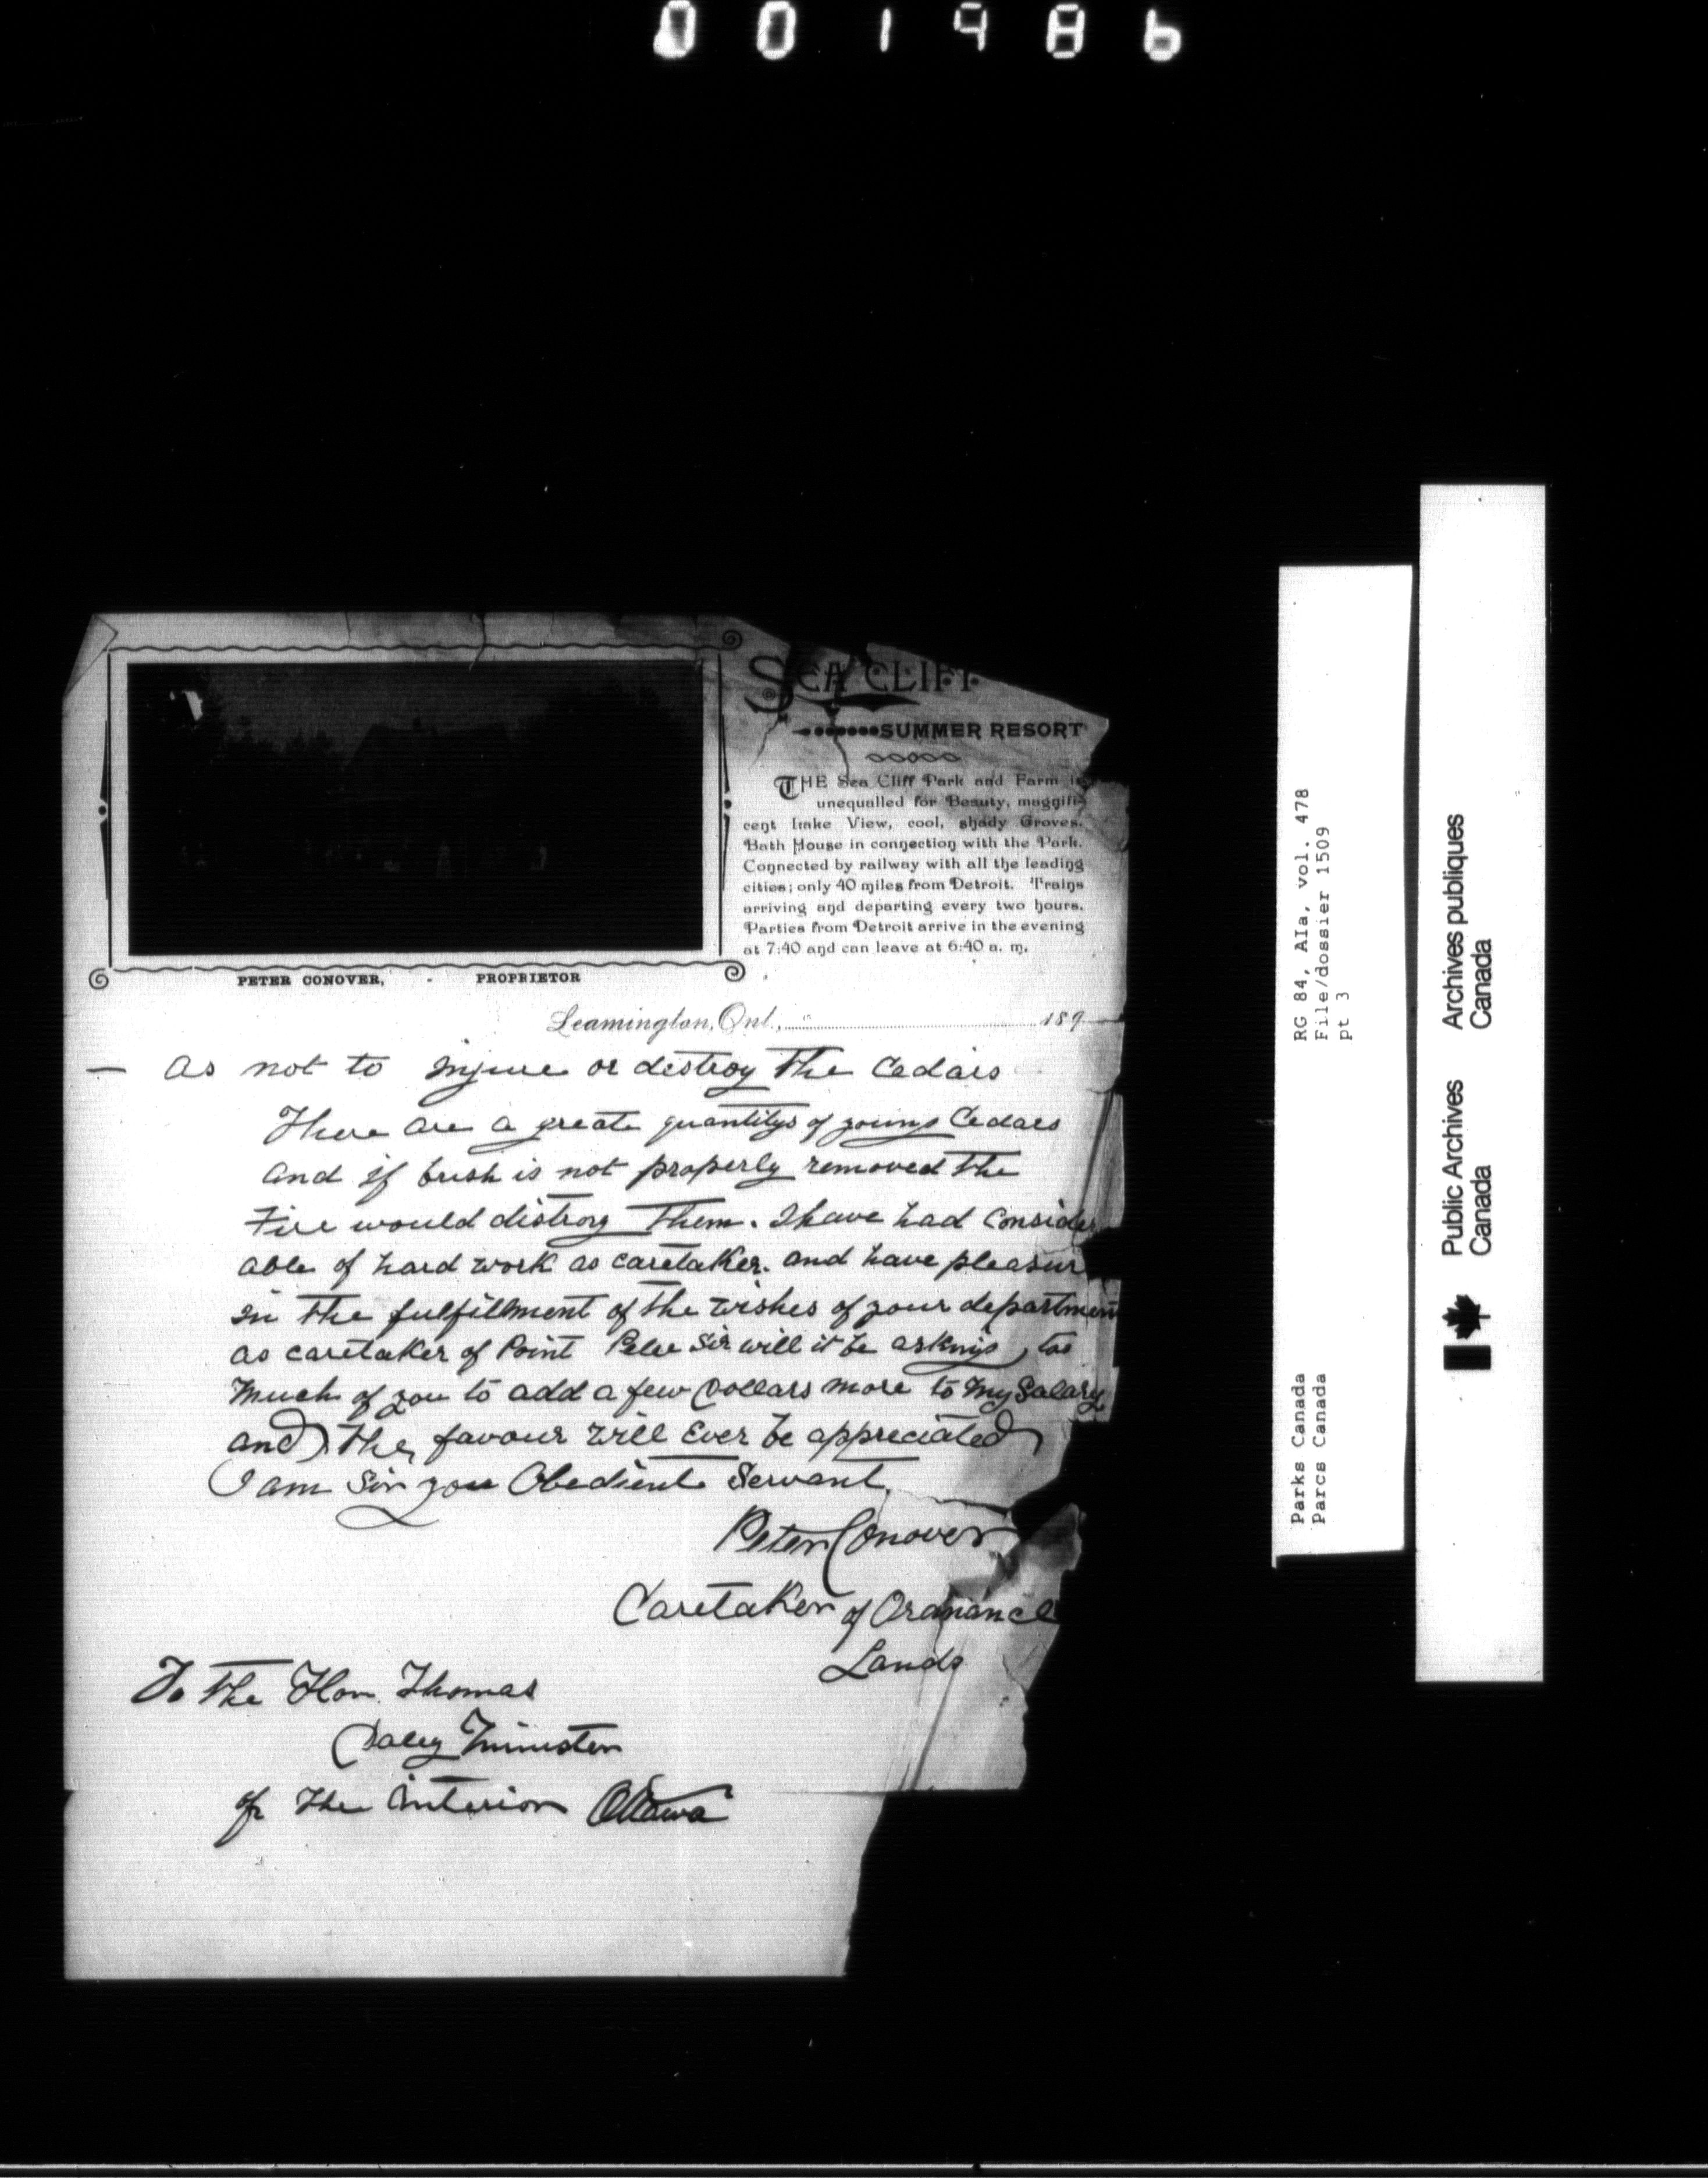 001986
SEA CLIFF
SUMMER RESORT
THE Sea Cliff Park and Farm is
unequalled for Beauty, magnifi-
cent Lake View, cool, shady Groves.
Bath House in connection with the Park.
Connected by railway with all the leading
cities; only 40 miles from Detroit. Trains
arriving and departing every two hours.
Parties from Detroit arrive in the evening
at 7:40 and can leave at 6:40 a. m.
PETER CONOVER, - PROPRIETOR
Leamington, Ont., 189
— as not to injure or destroy the Cedars
There are a greate quantitys of young Cedars
and if brush is not properly removed the
Fire would distroy Them. I have had consider
able of hard work as caretaker. and have pleasur
in the fulfillment of the wishes of your department
as caretaker of Point Pelee Sir will it be asking too
much of you to add a few Dollars more to my Salary
and the favour will Ever be appreciated
I am Sir you Obedient Servant.
Peter Conover
Caretaker of Ordnance
Lands
To the Hon. Thomas
Daley Minister
of the interior Ottawa
RG 84, A1a, vol. 478
File/dossier 1509
pt 3
Parks Canada
Parcs Canada
Public Archives
Canada
Archives publiques
Canada